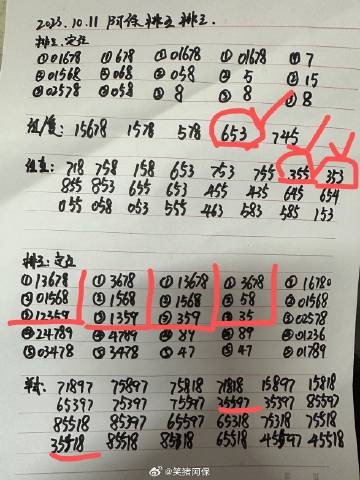 2023.10.11 阿保排五排三
排三.定位
①01678 ①678 ①01678 ①01678 ①7
②01568 ②068 ②058 ②5 ②15
③02578 ③058 ③8 ③8 ③8
15678 1578 578 653 745
718 758 158 653 753 755 355 353
855 853 655 653 455 435 645 654
055 058 053 555 463 583 585 153
排五:定位
①13678 ①3678 ①13678 ①3678 ①16780
②01568 ②1568 ②1568 ②58 ②01568
③12359 ③1359 ③359 ③35 ③02578
④24789 ④4789 ④89 ④89 ④01236
⑤03478 ⑤3478 ⑤47 ⑤47 ⑤01789
71897 75897 75818 71818 15897 15818
65397 75397 75597 35597 35397 85597
85518 85397 65597 65318 75318 75518
35518 85518 85318 65518 45597 45518
@笑猪阿保